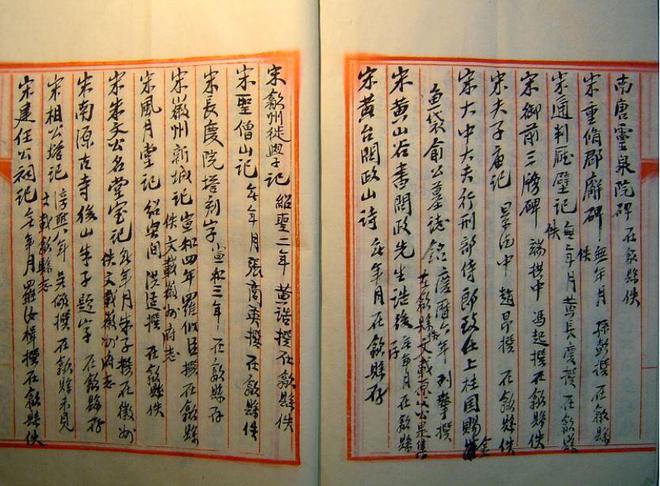 南唐靈泉院碑 在歙縣佚
宋重脩郡廨碑 無年月 孫彭撰 在歙縣佚
宋通判廳壁記 無年月 黃長慶撰 在歙縣佚
宋御前三牓碑 端拱中 馮起撰 在歙縣佚
宋夫子廟記 景德中 趙昂撰 在歙縣佚
宋大中大夫行刑部侍郎致仕上柱國賜金
魚袋俞公墓誌銘 慶曆六年 撰 在歙縣 文載
宋黃山谷書問政先生誥後 無年月 在歙縣存
宋黃台問政山诗 無年月 在歙縣存
宋歙州徙學記 紹聖二年 黃誥撰 在歙縣佚
宋聖僧山記 無年月 張商英撰 在歙縣佚
宋長慶院塔刻字 宣和三年 在歙縣存
宋徽州新城記 宣和四年 羅似臣撰 在歙縣佚 文載徽州府志
宋風月堂記 紹興間 洪适撰 在歙縣佚
宋朱文公名堂室記 無年月 朱子撰 在徽州佚 文載徽州府志
宋南源古寺後山朱子題字 在歙縣存
宋相公塔記 淳熙八年 吳儆撰 在歙縣未見 文載歙縣志
宋建任公祠記 無年月 羅汝楫撰 在歙縣佚